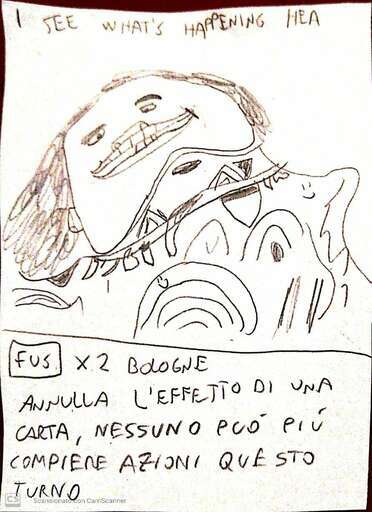 I SEE WHAT'S HAPPENING HEA
FUS X2 BOLOGNE
ANNULLA L'EFFETTO DI UNA
CARTA, NESSUNO PUÓ PIÚ
COMPIERE AZIONI QUESTO
TURNO
CS Scansionato con CamScanner